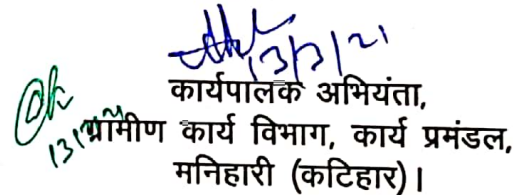 13/3/21
कार्यपालक अभियंता,
ग्रामीण कार्य विभाग, कार्य प्रमंडल,
मनिहारी (कटिहार)।